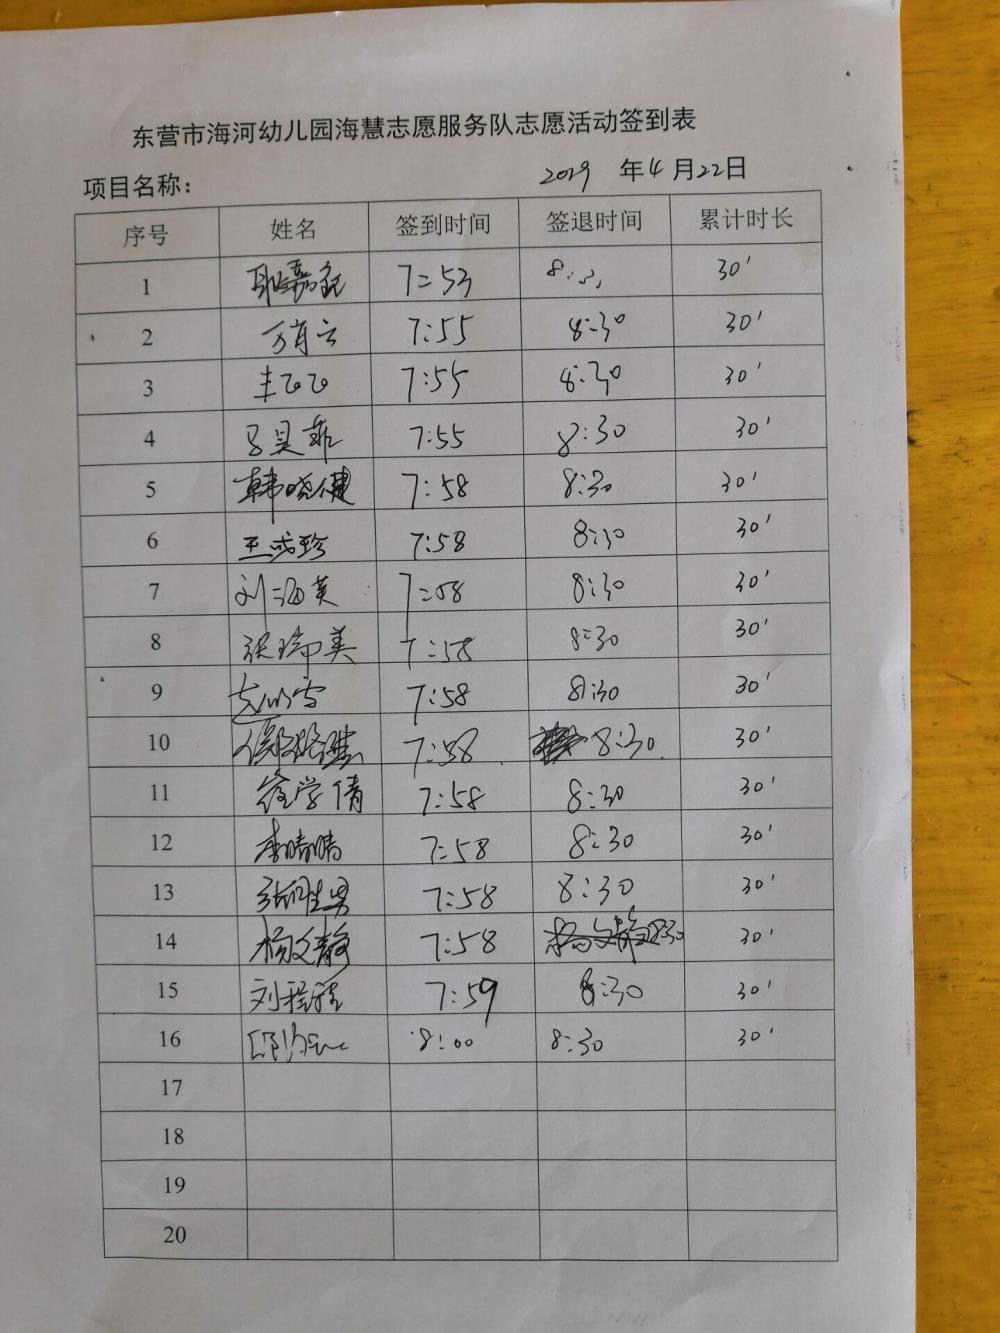 东营市海河幼儿园海慧志愿服务队志愿活动签到表
项目名称： 2019 年 4 月 22 日
序号 姓名 签到时间 签退时间 累计时长
1 7:53 30'
2 7:55 8:30 30'
3 7:55 8:30 30'
4 7:55 8:30 30'
5 韩晓健 7:58 8:30 30'
6 7:58 8:30 30'
7 刘海英 7:58 8:30 30'
8 张瑞美 7:58 8:30 30'
9 7:58 8:30 30'
10 7:58 8:30 30'
11 徐学倩 7:58 8:30 30'
12 李晴晴 7:58 8:30 30'
13 张胜男 7:58 8:30 30'
14 杨文静 7:58 8:30 30'
15 刘程程 7:59 8:30 30'
16 8:00 8:30 30'
17
18
19
20